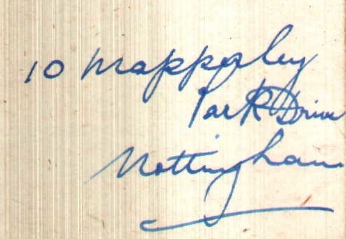 10 Mapperley
Park Drive
Nottingham